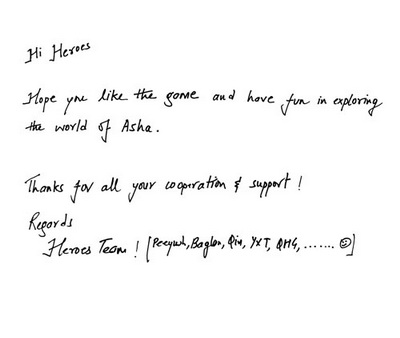 Hi Heroes
Hope you like the game and have fun in exploring
the world of Asha.
Thanks for all your cooperation & support !
Regards
Heroes Team ! [Peeyush, Baglan, Qin, YXT, QMG, ....... ☺]